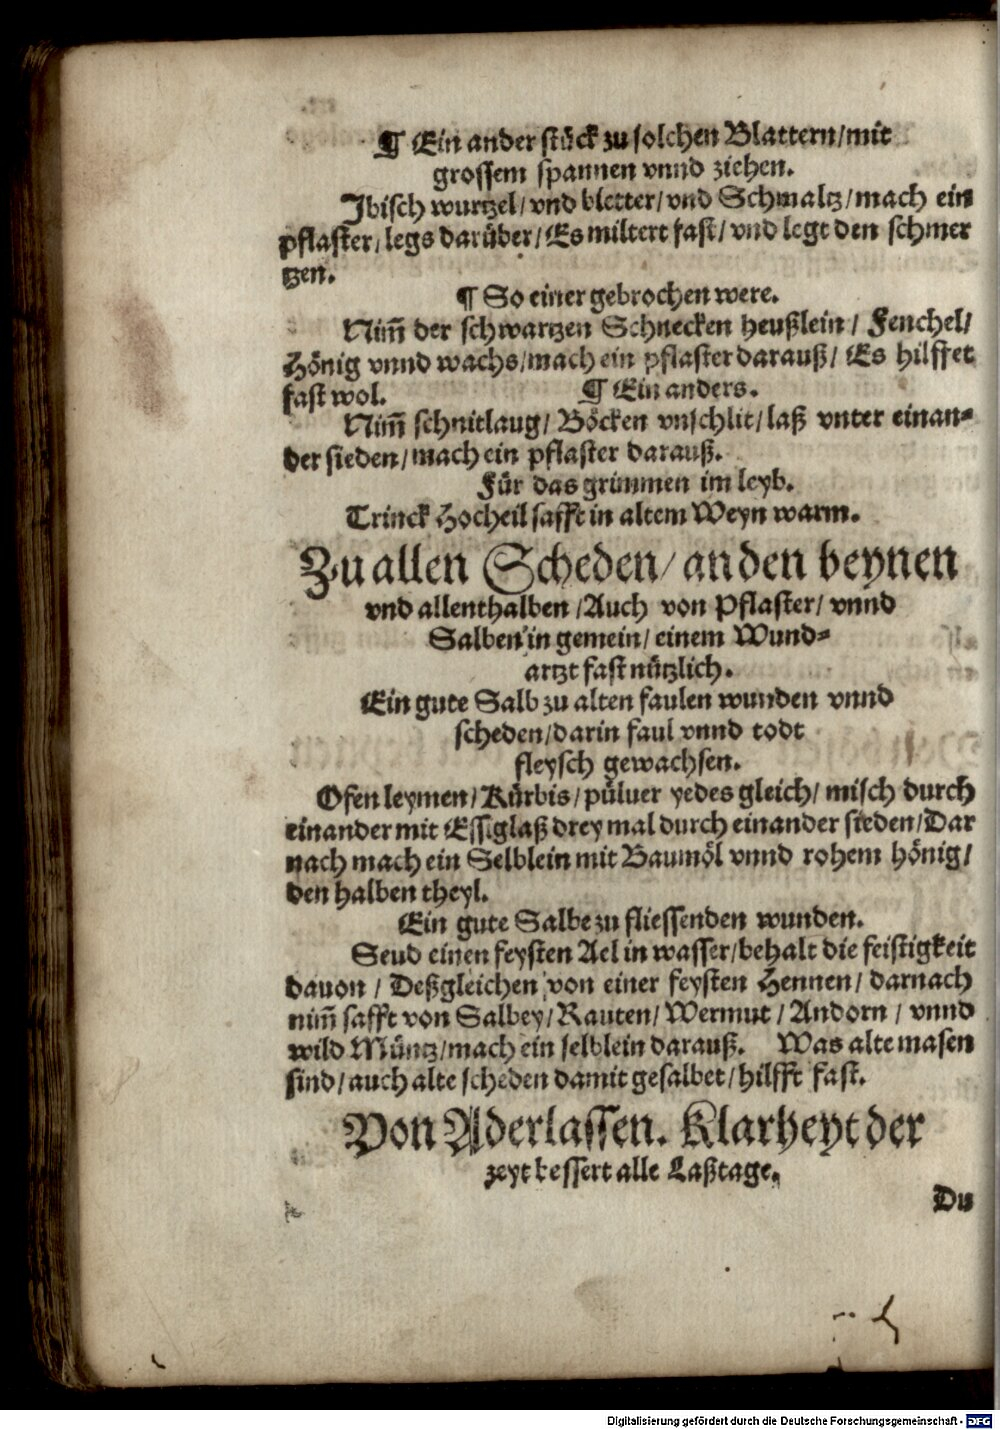 ¶ Ein ander stück zu solchen Blattern/mit
grossem spannen vnnd ziehen.
Ibisch wurtzel/vnd bletter/vnd Schmaltz/mach ein
pflaster/legs darüber/Es miltert fast/vnd legt den schmer
tzen.
¶ So einer gebrochen were.
Nim̃ der schwartzen Schnecken heußlein/ Fenchel/
Hönig vnnd wachs/mach ein pflaster darauß/ Es hilffet
fast wol. ¶ Ein anders.
Nim̃ schnitlaug/ Böcken vnschlit/laß vnter einan-
der sieden/mach ein pflaster darauß.
Für das grimmen im leyb.
Trinck Hocheil safft in altem Weyn warm.
Zu allen Scheden/an den beynen
vnd allenthalben/Auch von Pflaster/ vnnd
Salben in gemein/ einem Wund-
artzt fast nützlich.
Ein gute Salb zu alten faulen wunden vnnd
scheden/darin faul vnnd todt
fleysch gewachsen.
Ofen leymen/Kürbis/pûluer yedes gleich/ misch durch
einander mit Essig laß drey mal durch einander sieden/Dar
nach mach ein Selblein mit Baumöl vnnd rohem hönig/
den halben theyl.
Ein gute Salbe zu fliessenden wunden.
Seud einen feysten Ael in wasser/behalt die feistigkeit
dauon / Deßgleichen von einer feysten Hennen/ darnach
nim̃ safft von Salbey/Rauten/ Wermut / Andorn / vnnd
wild Müntz/mach ein selblein darauß. Was alte masen
sind/auch alte scheden damit gesalbet/hilfft fast.
Von Aderlassen. Klarheyt der
zeyt bessert alle Laßtage.
Du
Digitalisierung gefördert durch die Deutsche Forschungsgemeinschaft - DFG